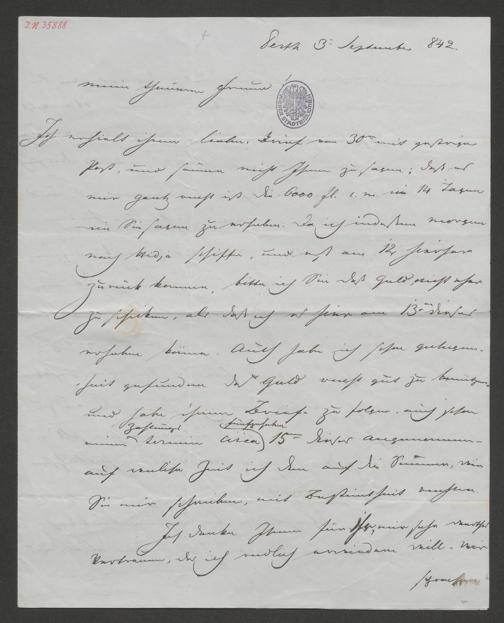 I.N. 35888
Pesth 3t September 842.
mein theurer Freund!
Ich erhielt Ihren lieben Brief von 30t mit gestriger
Post, und säume nicht Ihnen zu sagen, daß es
mir ganz recht ist die 6000 fl. c. m. in 14 Tagen
wie Sie sagen zu erheben. Da ich indessen morgen
nach schiffe, und erst am 12t hierher
zurück komme, bitte ich Sie das Geld nicht eher
zu schicken, als daß ich es hier am 13t dieses
erheben könne. Auch habe ich schon gelegen-
heit gefunden das Geld recht gut zu benützen,
und habe Ihrem Briefe zu folge, auch schon
Zahlungs
meinen termin circa 15t dieses angenommen
auf welche Zeit ich dann auf die Summe, wie
Sie mir schreiben, mit Bestimmtheit rechne.
Ich danke Ihnen für Ihr mir sehr werthes
Vertrauen, das ich redlich erwiedern will. Wir